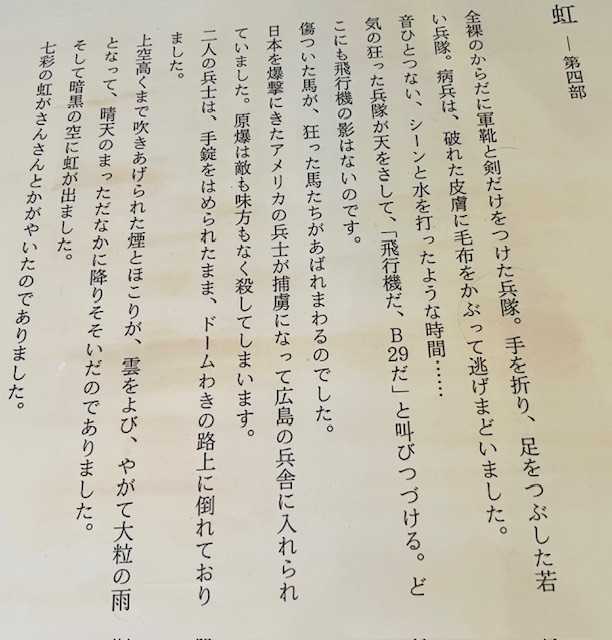 虹 ―第四部
全裸のからだに軍靴と剣だけをつけた兵隊。手を折り、足をつぶした若
い兵隊。病兵は、破れた皮膚に毛布をかぶって逃げまどいました。
音ひとつない、シーンと水を打ったような時間……
気の狂った兵隊が天をさして、「飛行機だ、B29だ」と叫びつづける。ど
こにも飛行機の影はないのです。
傷ついた馬が、狂った馬たちがあばれまわるのでした。
日本を爆撃にきたアメリカの兵士が捕虜になって広島の兵舎に入れられ
ていました。原爆は敵も味方もなく殺してしまいます。
二人の兵士は、手錠をはめられたまま、ドームわきの路上に倒れており
ました。
上空高くまで吹きあげられた煙とほこりが、雲をよび、やがて大粒の雨
となって、晴天のまっただなかに降りそそいだのでありました。
そして暗黒の空に虹が出ました。
七彩の虹がさんさんとかがやいたのでありました。